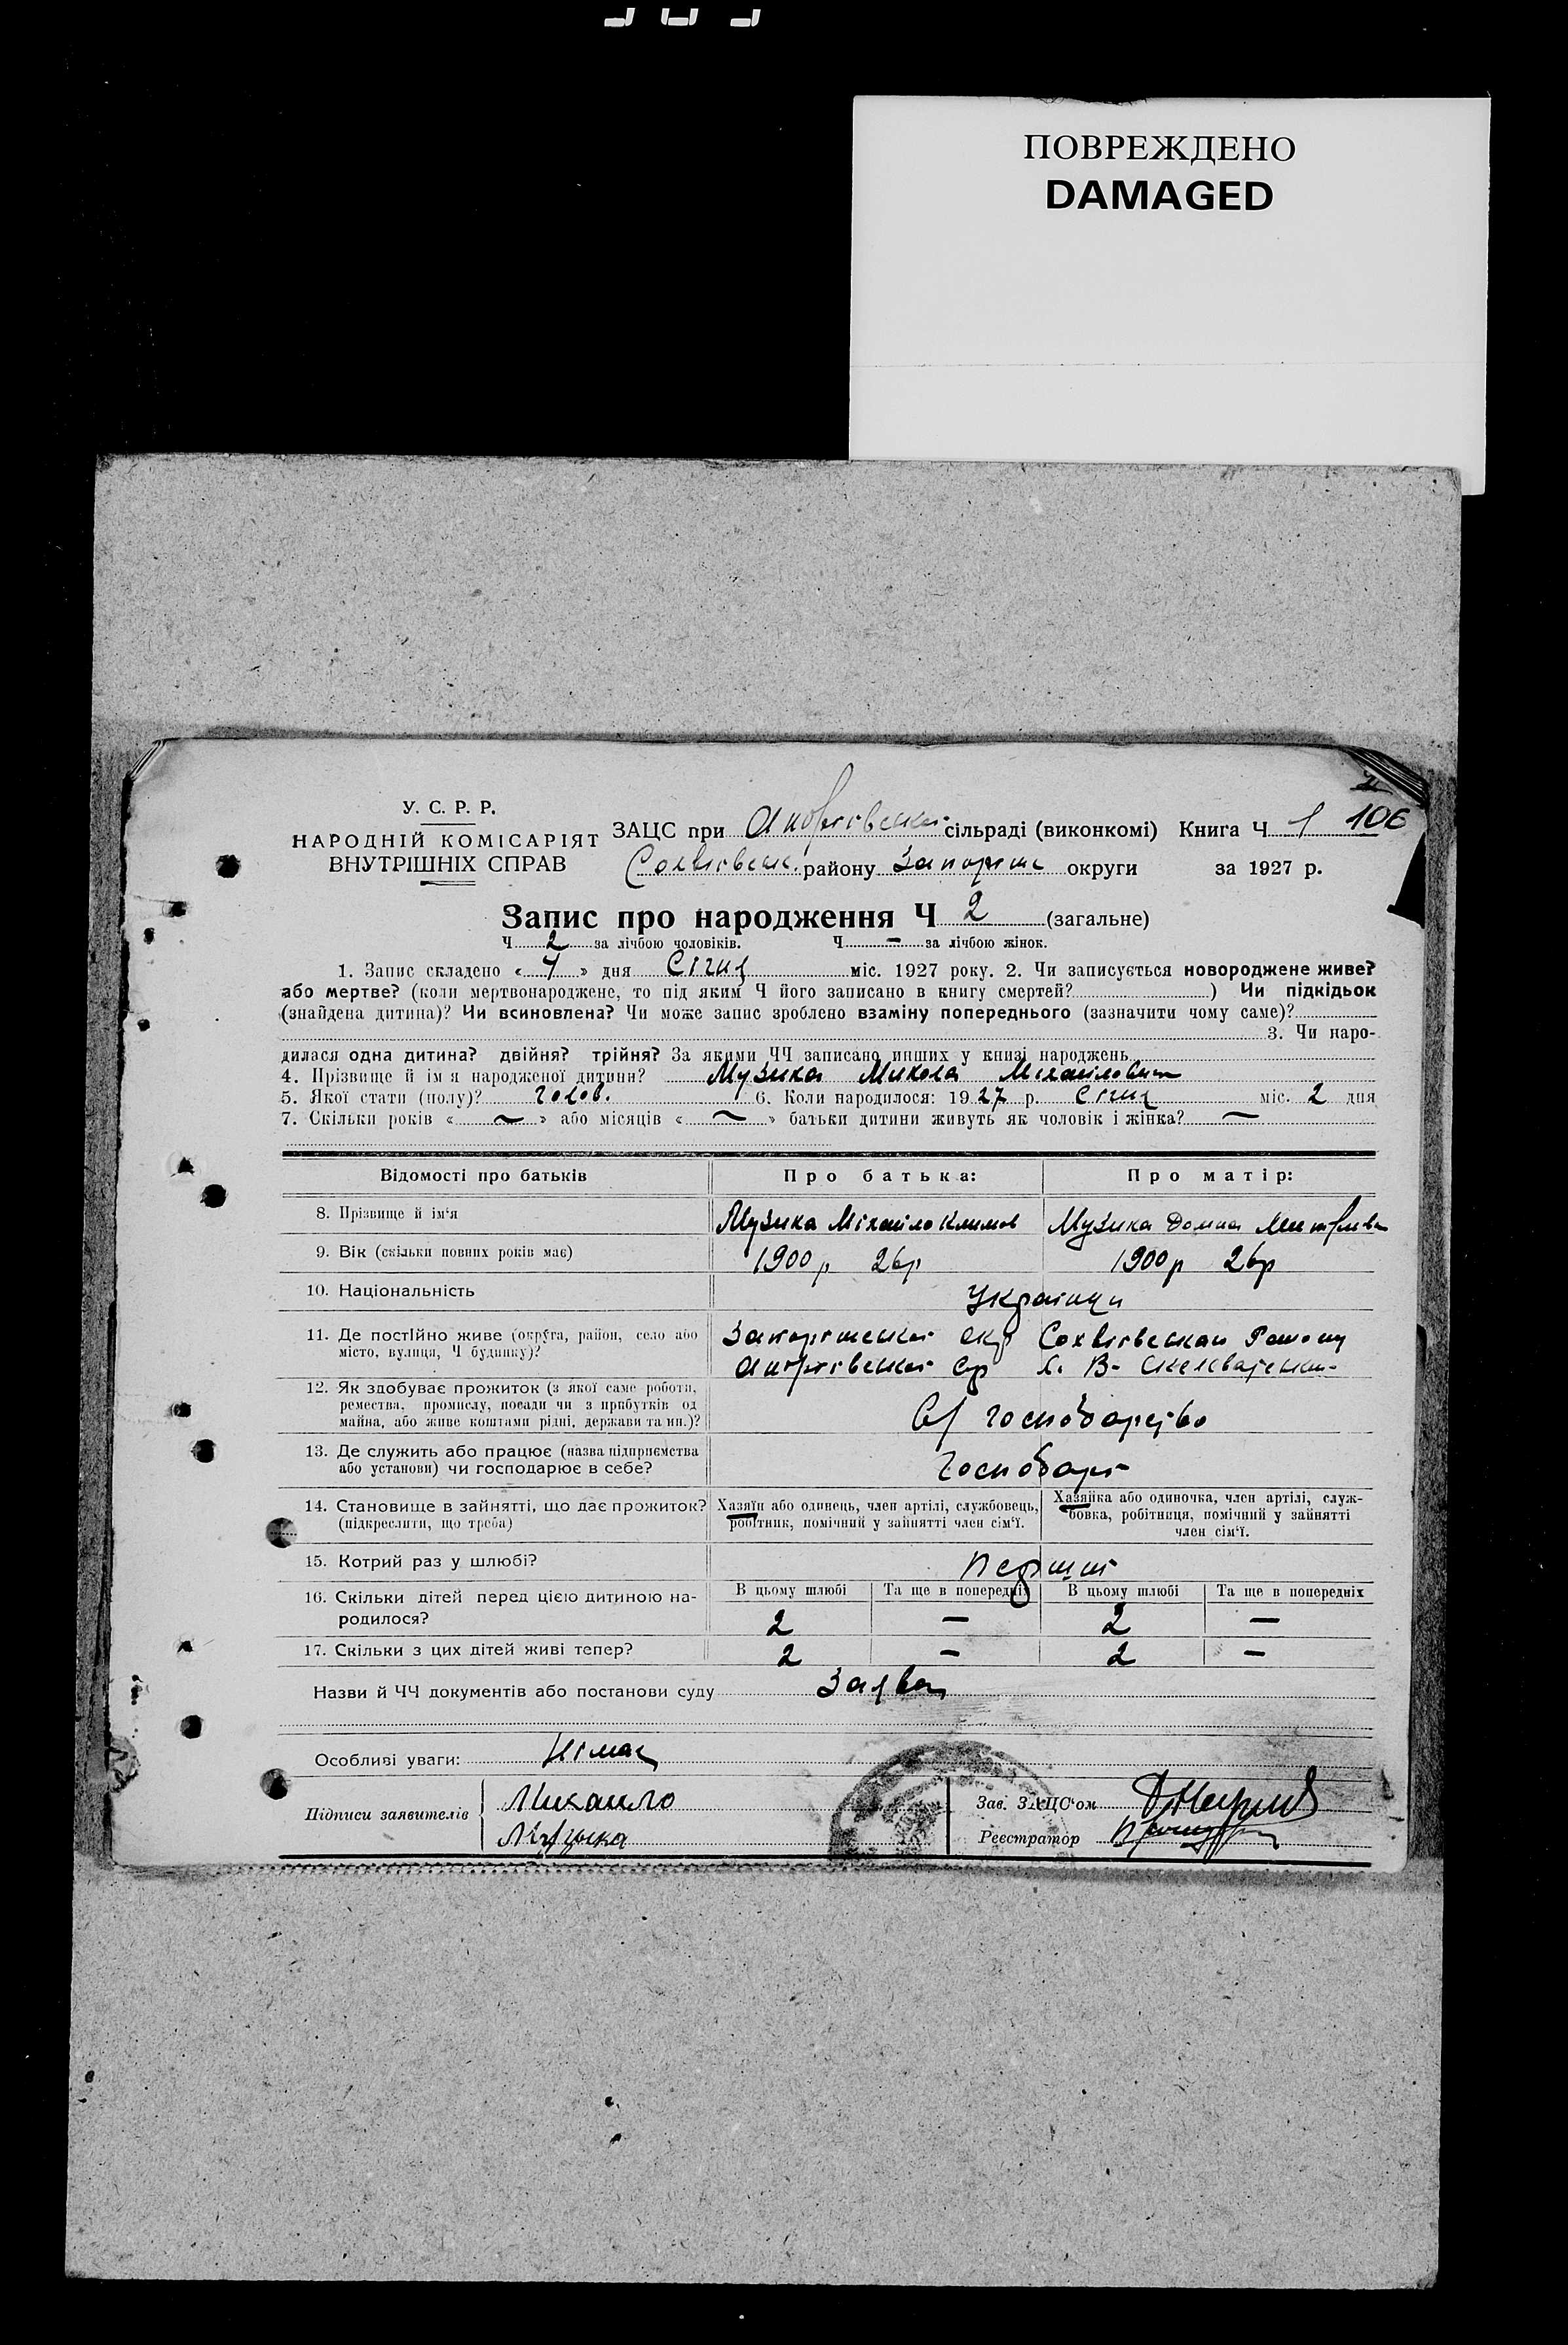 ПОВРЕЖДЕНО
DAMAGED
У. С. Р. Р.
НАРОДНІЙ КОМІСАРІЯТ
ВНУТРІШНІХ СПРАВ
ЗАЦС при сільраді (виконкомі) Книга Ч 1 106
району округи за 1927 р.
Запис про народження Ч 2 (загальне)
Ч 2 за лічбою чоловіків. Ч — за лічбою жінок.
1. Запис складено « 4 » дня Січня міс. 1927 року. 2. Чи записується новороджене живе?
або мертве? (коли мертвонароджене, то під яким Ч його записано в книгу смертей? ) Чи підкідьок
(знайдена дитина)? Чи всиновлена? Чи може запис зроблено взаміну попереднього (зазначити чому саме)?
3. Чи наро-
дилася одна дитина? двійня? трійня? За якими ЧЧ записано инших у книзі народжень
4. Прізвище й ім'я народженої дитини? Музика Микола Михайлович
5. Якої стати (полу)? Чолов. 6. Коли народилося: 1927 р. Січня міс. 2 дня
7. Скільки років « ~ » або місяців « ~ » батьки дитини живуть як чоловік і жінка? ~
Відомості про батьків Про батька: Про матір:
8. Прізвище й ім'я Музика Міхайло Климов Музика Домна
9. Вік (скільки повних років має) 1900 р 26 р 1900 р 26 р
10. Національність Українци
11. Де постійно живе (округа, район, село або
місто, вулиця, Ч будинку)?
12. Як здобуває прожиток (з якої саме роботи,
ремества, промислу, посади чи з прибутків од
майна, або живе коштами рідні, держави та ин.)? С/ господарство
13. Де служить або працює (назва підприємства
або установи) чи господарює в себе? Господарі
14. Становище в зайнятті, що дає прожиток?
(підкреслити, що треба)
Хазяїн або одинець, член артілі, службовець,
робітник, помічний у зайнятті член сім'ї.
Хазяйка або одиночка, член артілі, служ-
бовка, робітниця, помічний у зайнятті
член сім'ї.
15. Котрий раз у шлюбі? перший
16. Скільки дітей перед цією дитиною на-
родилося?
В цьому шлюбі Та ще в попередніх В цьому шлюбі Та ще в попередніх
2 — 2 —
17. Скільки з цих дітей живі тепер? 2 — 2 —
Назви й ЧЧ документів або постанови суду Заява
Особливі уваги: Німає
Підписи заявителів Михаило
Музыка
Зав. ЗАЦС'ом
Реєстратор